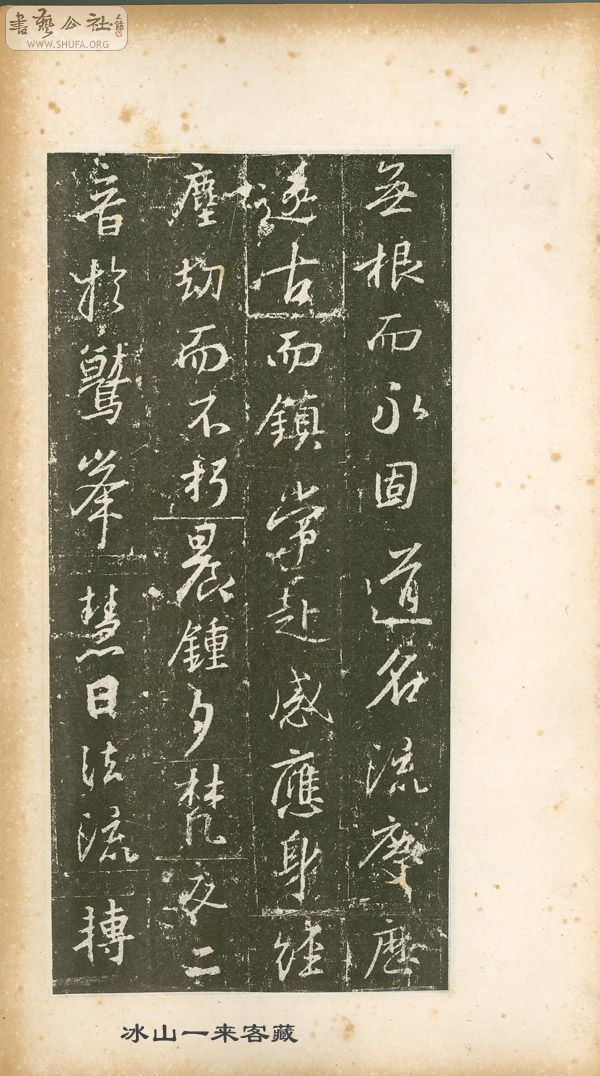 書藝公社
WWW.SHUFA.ORG
無根而永固道名流慶歷
遂古而鎮常赴感應身經
塵劫而不朽晨鍾夕梵交二
音於鷲峯慧日法流轉
冰山一来客藏